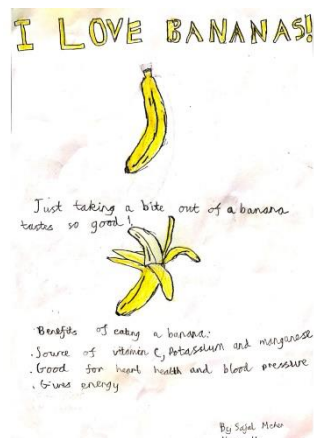 I LOVE BANANAS!
Just taking a bite out of a banana
tastes so good!
Benefits of eating a banana:
. Source of vitamin C, Potassium and manganese
. Good for heart health and blood pressure
. Gives energy
By Sajal